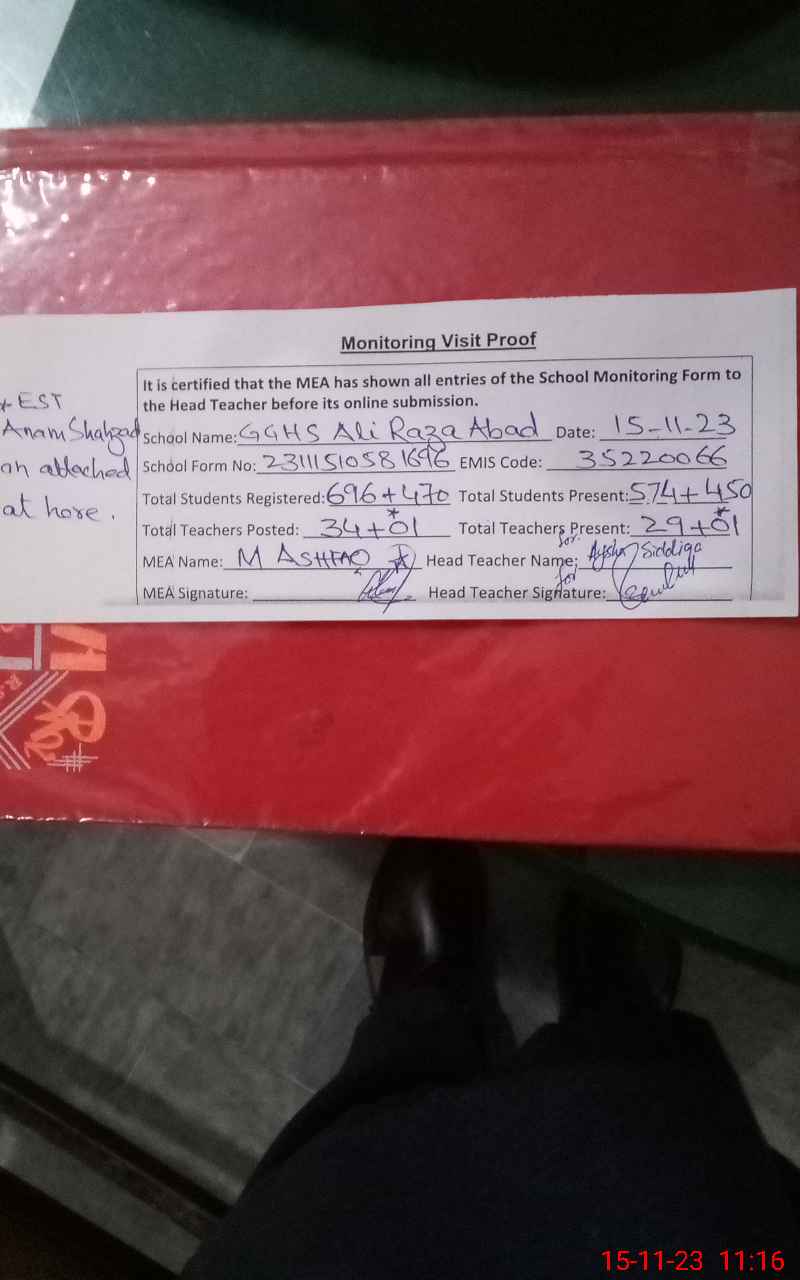 Monitoring Visit Proof
It is certified that the MEA has shown all entries of the School Monitoring Form to
the Head Teacher before its online submission.
School Name: GGHS Ali Raza Abad Date: 15-11-23
School Form No: 23111510581696 EMIS Code: 35220066
Total Students Registered: 696+470 Total Students Present: 574+450
Total Teachers Posted: 34+*01 Total Teachers Present: 29+*01
MEA Name: M ASHFAQ Head Teacher Name: for Aysha Siddiqa
MEA Signature: Head Teacher Signature: for
* EST
Anam Shahzad
an attached
at here.
15-11-23 11:16